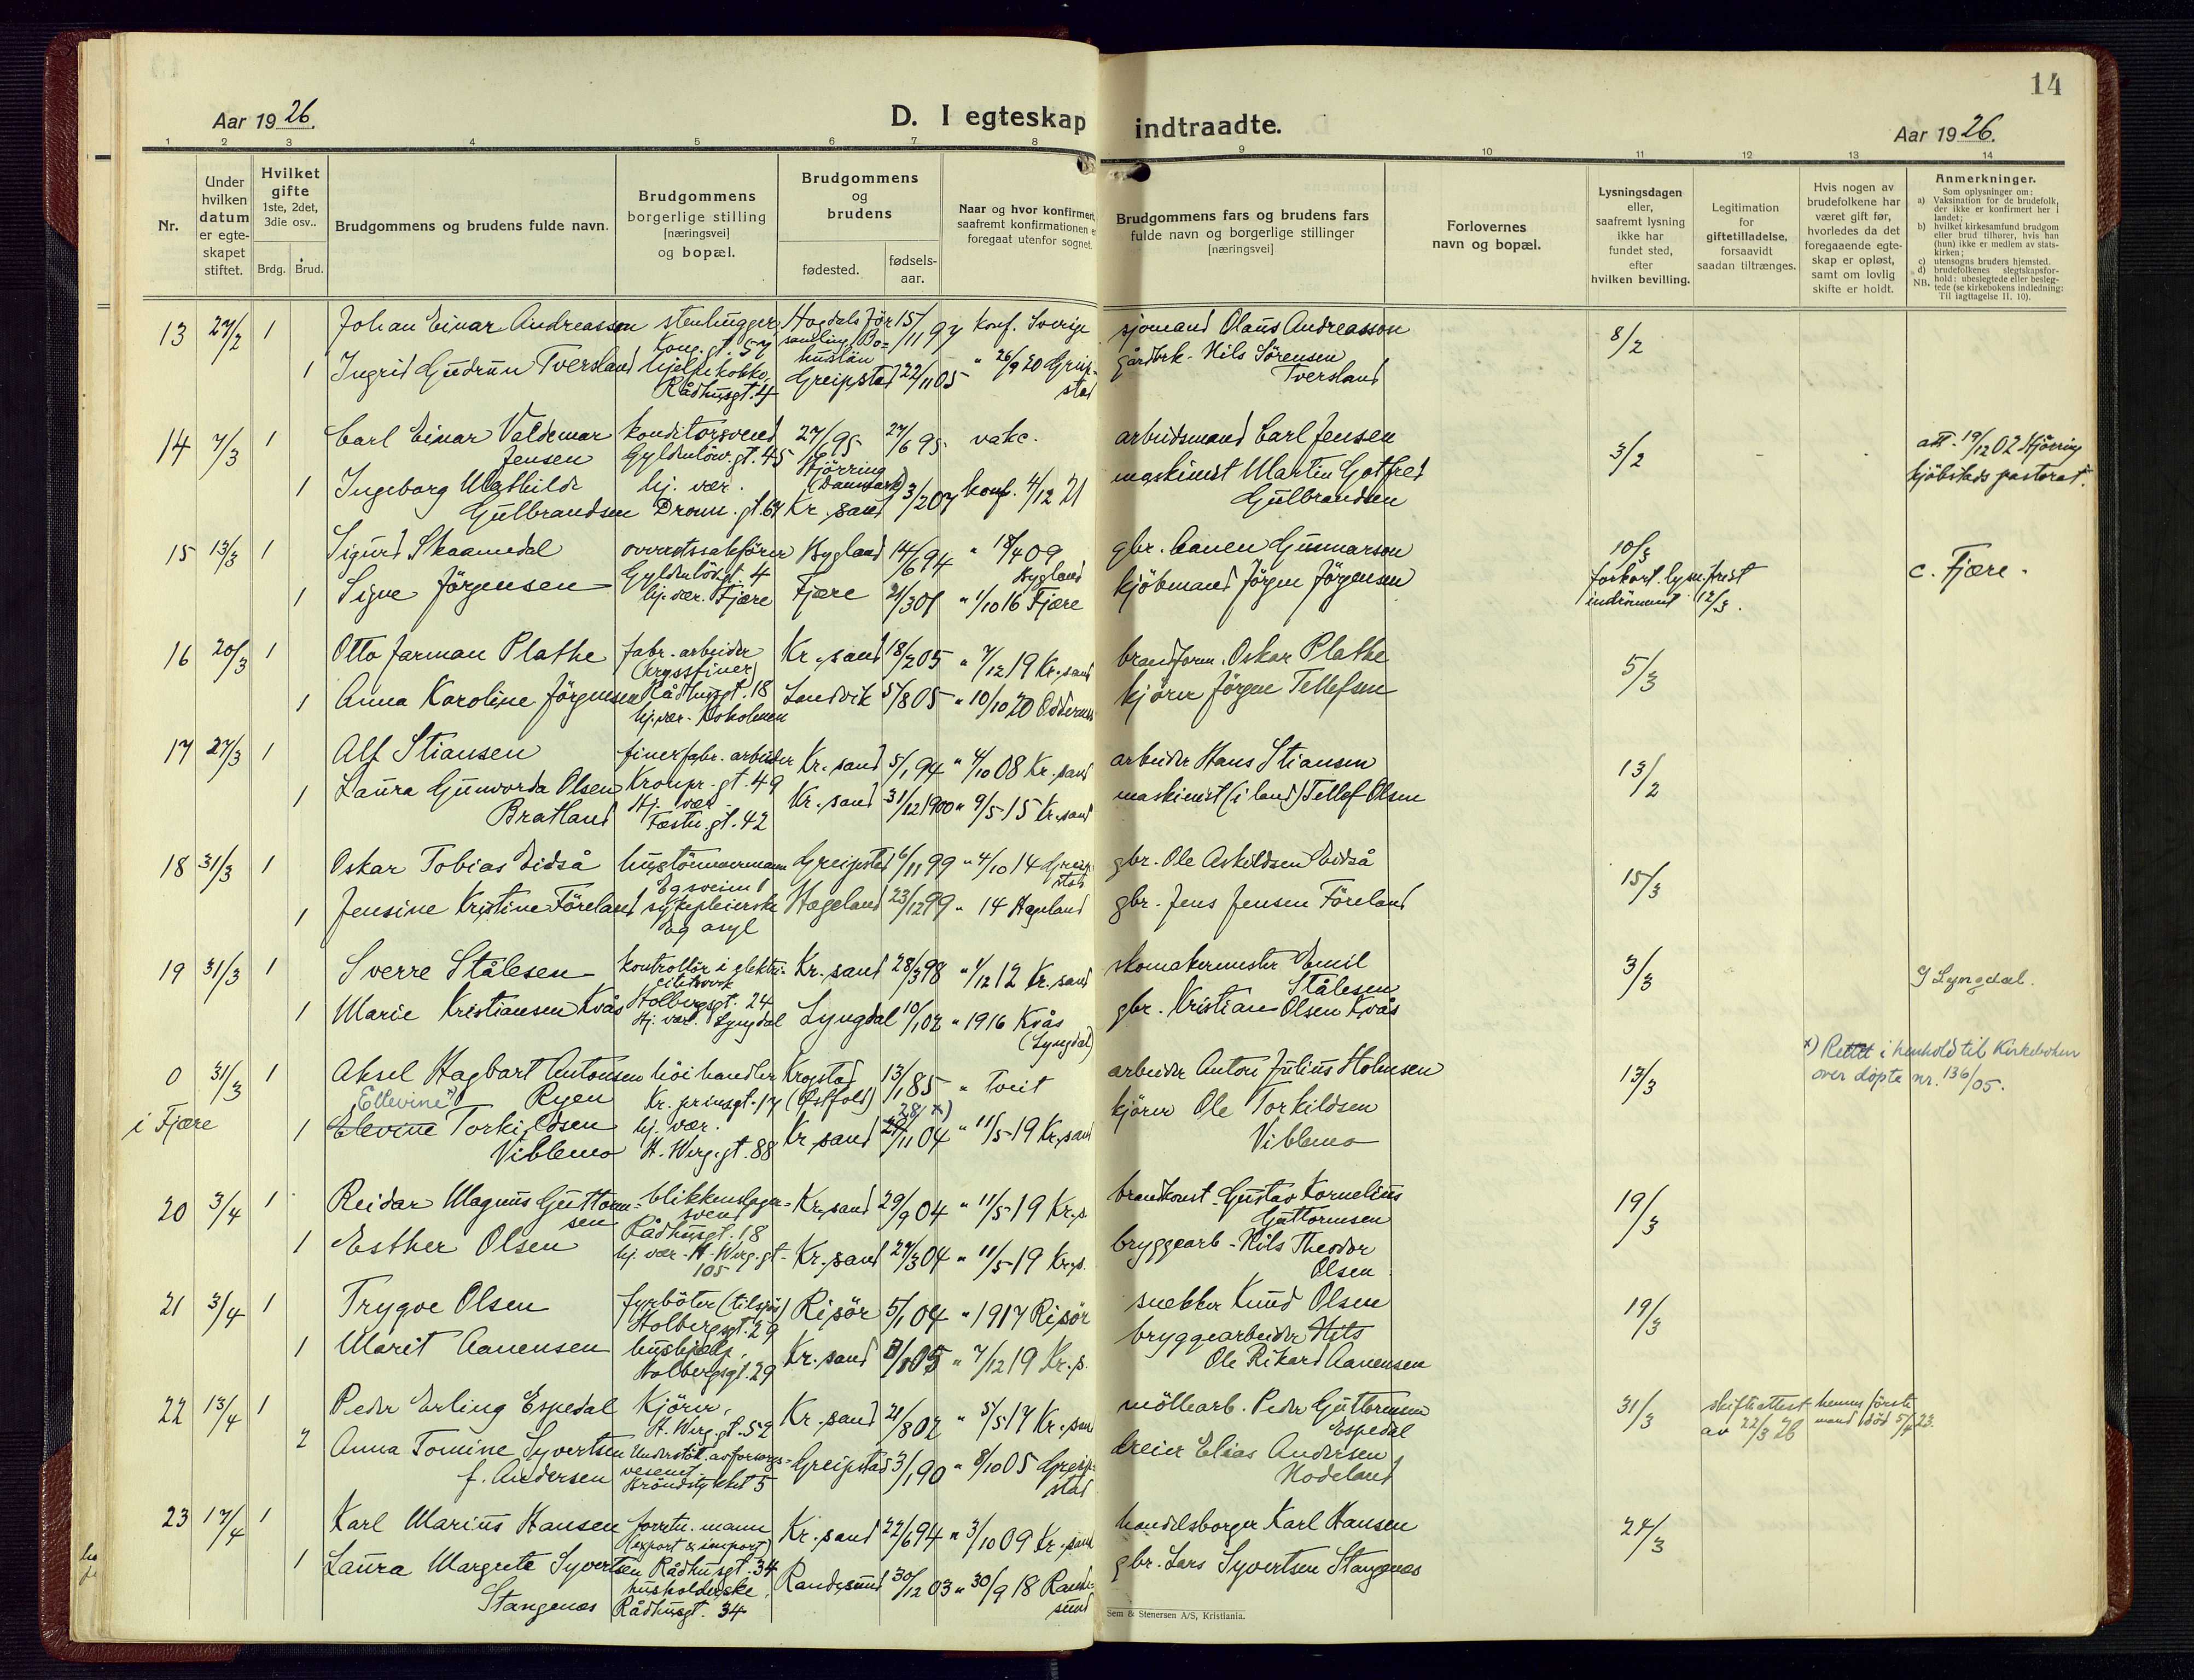 14
Aar 1926.
D. I egteskap indtraadte.
Aar 1926.
1 2 3 4 5 6 7 8 9 10 11 12 13 14
Nr.
Under hvilken datum er egte- skapet stiftet.
Hvilket gifte 1ste, 2det, 3die osv..
Brdg. Brud.
Brudgommens og brudens fulde navn.
Brudgommens borgerlige stilling [næringsvei] og bopæl.
Brudgommens og brudens
fødested.
fødsels- aar.
Naar og hvor konfirmert, saafremt konfirmationen er foregaat utenfor sognet.
Brudgommens fars og brudens fars fulde navn og borgerlige stillinger [næringsvei]
Forlovernes navn og bopæl.
Lysningsdagen eller, saafremt lysning ikke har fundet sted, efter hvilken bevilling.
Legitimation for giftetilladelse, forsaavidt saadan tiltrænges.
Hvis nogen av brudefolkene har været gift før, hvorledes da det foregaaende egte- skap er opløst, samt om lovlig skifte er holdt.
Anmerkninger.
Som oplysninger om:
a) Vaksination for de brudefolk, der ikke er konfirmert her i landet;
b) hvilket kirkesamfund brudgom eller brud tilhører, hvis han (hun) ikke er medlem av stats- kirken;
c) utensogns bruders hjemsted.
d) brudefolkenes slegtskapsfor- hold: ubeslegtede eller besleg- tede (se kirkebokens indledning: NB. Til iagttagelse II. 10).
13 27/2 1 Johan Einar Andreassen stenhugger Kong. gt. 57 15/11 97 konf. Sverige sjømand Olaus Andreasson 8/2
1 Ingrid Gudrun Tversland hjelpekokke, Rådhusgt. 4 Greipstad 22/11 05 " 26/9 20 Greipstad gårdbrk. Nils Sörensen Tversland
14 7/3 1 Carl Einar Valdemar Jensen konditorsvend Gyldenløv. gt. 45 27/6 95 Hjörring (Danmark) 27/6 95 vakc. arbeidsmand Carl Jensen 3/2 att. 19/12 02 Hjörring kjöbstads pastorat.
1 Ingeborg Mathilde Gulbrandsen hj. vær. Dronn. gt. 67 Kr. sand 3/2 07 konf. 4/12 21 maskinist Martin Gotfred Gulbrandsen
15 13/3 1 Sigurd Skaamedal overretssakförer Gyldenlövgt. 4 Bygland 14/6 94 " 18/4 09 Bygland gbr. Aanen Gunnarson 10/3 forkort. lysn. frist indrömmet 12/3. c. Fjære.
1 Signe Jörgensen hj. vær. Fjære Fjære 21/3 01 " 1/10 16 Fjære kjöbmand Jörgen Jörgensen
16 20/3 1 Otto Jarman Plathe fabr. arbeider (krydsfiner) Rådhusgt. 18 Kr. sand 18/2 05 " 7/12 19 Kr. sand brandform. Oskar Plathe 5/3
1 Anna Karoline Jörgensen hj. vær. Landvik 5/8 05 " 10/10 20 Oddernes kjörer Jörgen Tellefsen
17 27/3 1 Alf Stiansen finerfabr. arbeider Kronpr. gt. 49 Kr. sand 5/1 94 " 4/10 08 Kr. sand arbeider Hans Stiansen 13/2
1 Laura Gunvorda Olsen Bratland Hj. vær. Fæstn. gt. 42 Kr. sand 31/12 1900 " 9/5 15 Kr. sand maskinist (i land) Tellef Olsen
18 31/3 1 Oskar Tobias Eidså hustömmermann Egsveien 1 Greipstad 6/11 99 " 4/10 14 Greipstad gbr. Ole Askildsen Eidså 15/3
1 Jensine Kristine Föreland sykepleierske Eg asyl Hægeland 23/12 99 " 14 Hægeland gbr. Jens Jensen Föreland
19 31/3 1 Sverre Stålesen kontrollör i elektri- citetsverk Holbergsgt. 24 Kr. sand 28/3 98 " 1/12 12 Kr. sand skomakermester Emil Stålesen 3/3 I Lyngdal.
1 Marie Kristiansen Kvås Hj. vær. Lyngdal Lyngdal 10/1 02 " 1916 Kvås (Lyngdal) gbr. Kristian Olsen Kvås
0 i Fjære 31/3 1 Aksel Hagbart Antonsen Ryen höihandler Kr. prinsgt. 17 Krogstad (Østfold) 13/1 85 " Tveit arbeider Anton Julius Holmsen 13/3 x) Rettet i henhold til Kirkeboken over døpte nr. 136/05.
1 "Ellevine" Elevine Torkildsen Viblemo hj. vær. H. Werg. gt. 88 Kr. sand 28/ x) 29/11 04 " 11/5 19 Kr. sand kjörer Ole Torkildsen Viblemo
20 3/4 1 Reidar Magnus Guttorm- sen blikkenslager- svend Rådhusgt. 18 Kr. sand 29/9 04 " 11/5 19 Kr. s. brandkonst. Gustav Kornelius Guttormsen 19/3
1 Esther Olsen hj. vær. H. Werg. gt. 105 Kr. sand 27/3 04 " 11/5 19 Kr. s. bryggearb. Nils Theodor Olsen
21 3/4 1 Trygve Olsen fyrböter (tilsjös) Holbergsgt. 29 Risör 5/1 04 " 1917 Risör snekker Knud Olsen 19/3
1 Marit Aanensen hushjælp, Holbergsgt. 29 Kr. sand 3/8 05 " 7/12 19 Kr. s. bryggearbeider Nils Ole Rikard Aanensen
22 13/4 1 Peder Erling Espedal Kjörer, H. Werg. gt. 52 Kr. sand 21/8 02 " 5/5 17 Kr. sand möllearb. Peder Guttormsen Espedal 31/3 skifteattest av 22/3 26 hennes förste mand död 5/4 23.
2 Anna Tomine Syvertsen f. Andersen Understöt. av forsorgs- vesenet. Bröndstykket 5 Greipstad 3/1 90 " 8/10 05 Greipstad dreier Elias Andersen Hodeland
23 17/4 1 Karl Marius Hansen forretn. mann (export & import) Rådhusgt. 34 Kr. sand 22/6 94 " 3/10 09 Kr. sand handelsborger Karl Hansen 24/3
1 Laura Margrete Syvertsen Stangenes husholderske, Rådhusgt. 34 Randesund 30/12 03 " 30/9 18 Rande- sund gbr. Lars Syvertsen Stangenes
Sem & Stenersen A/S, Kristiania.